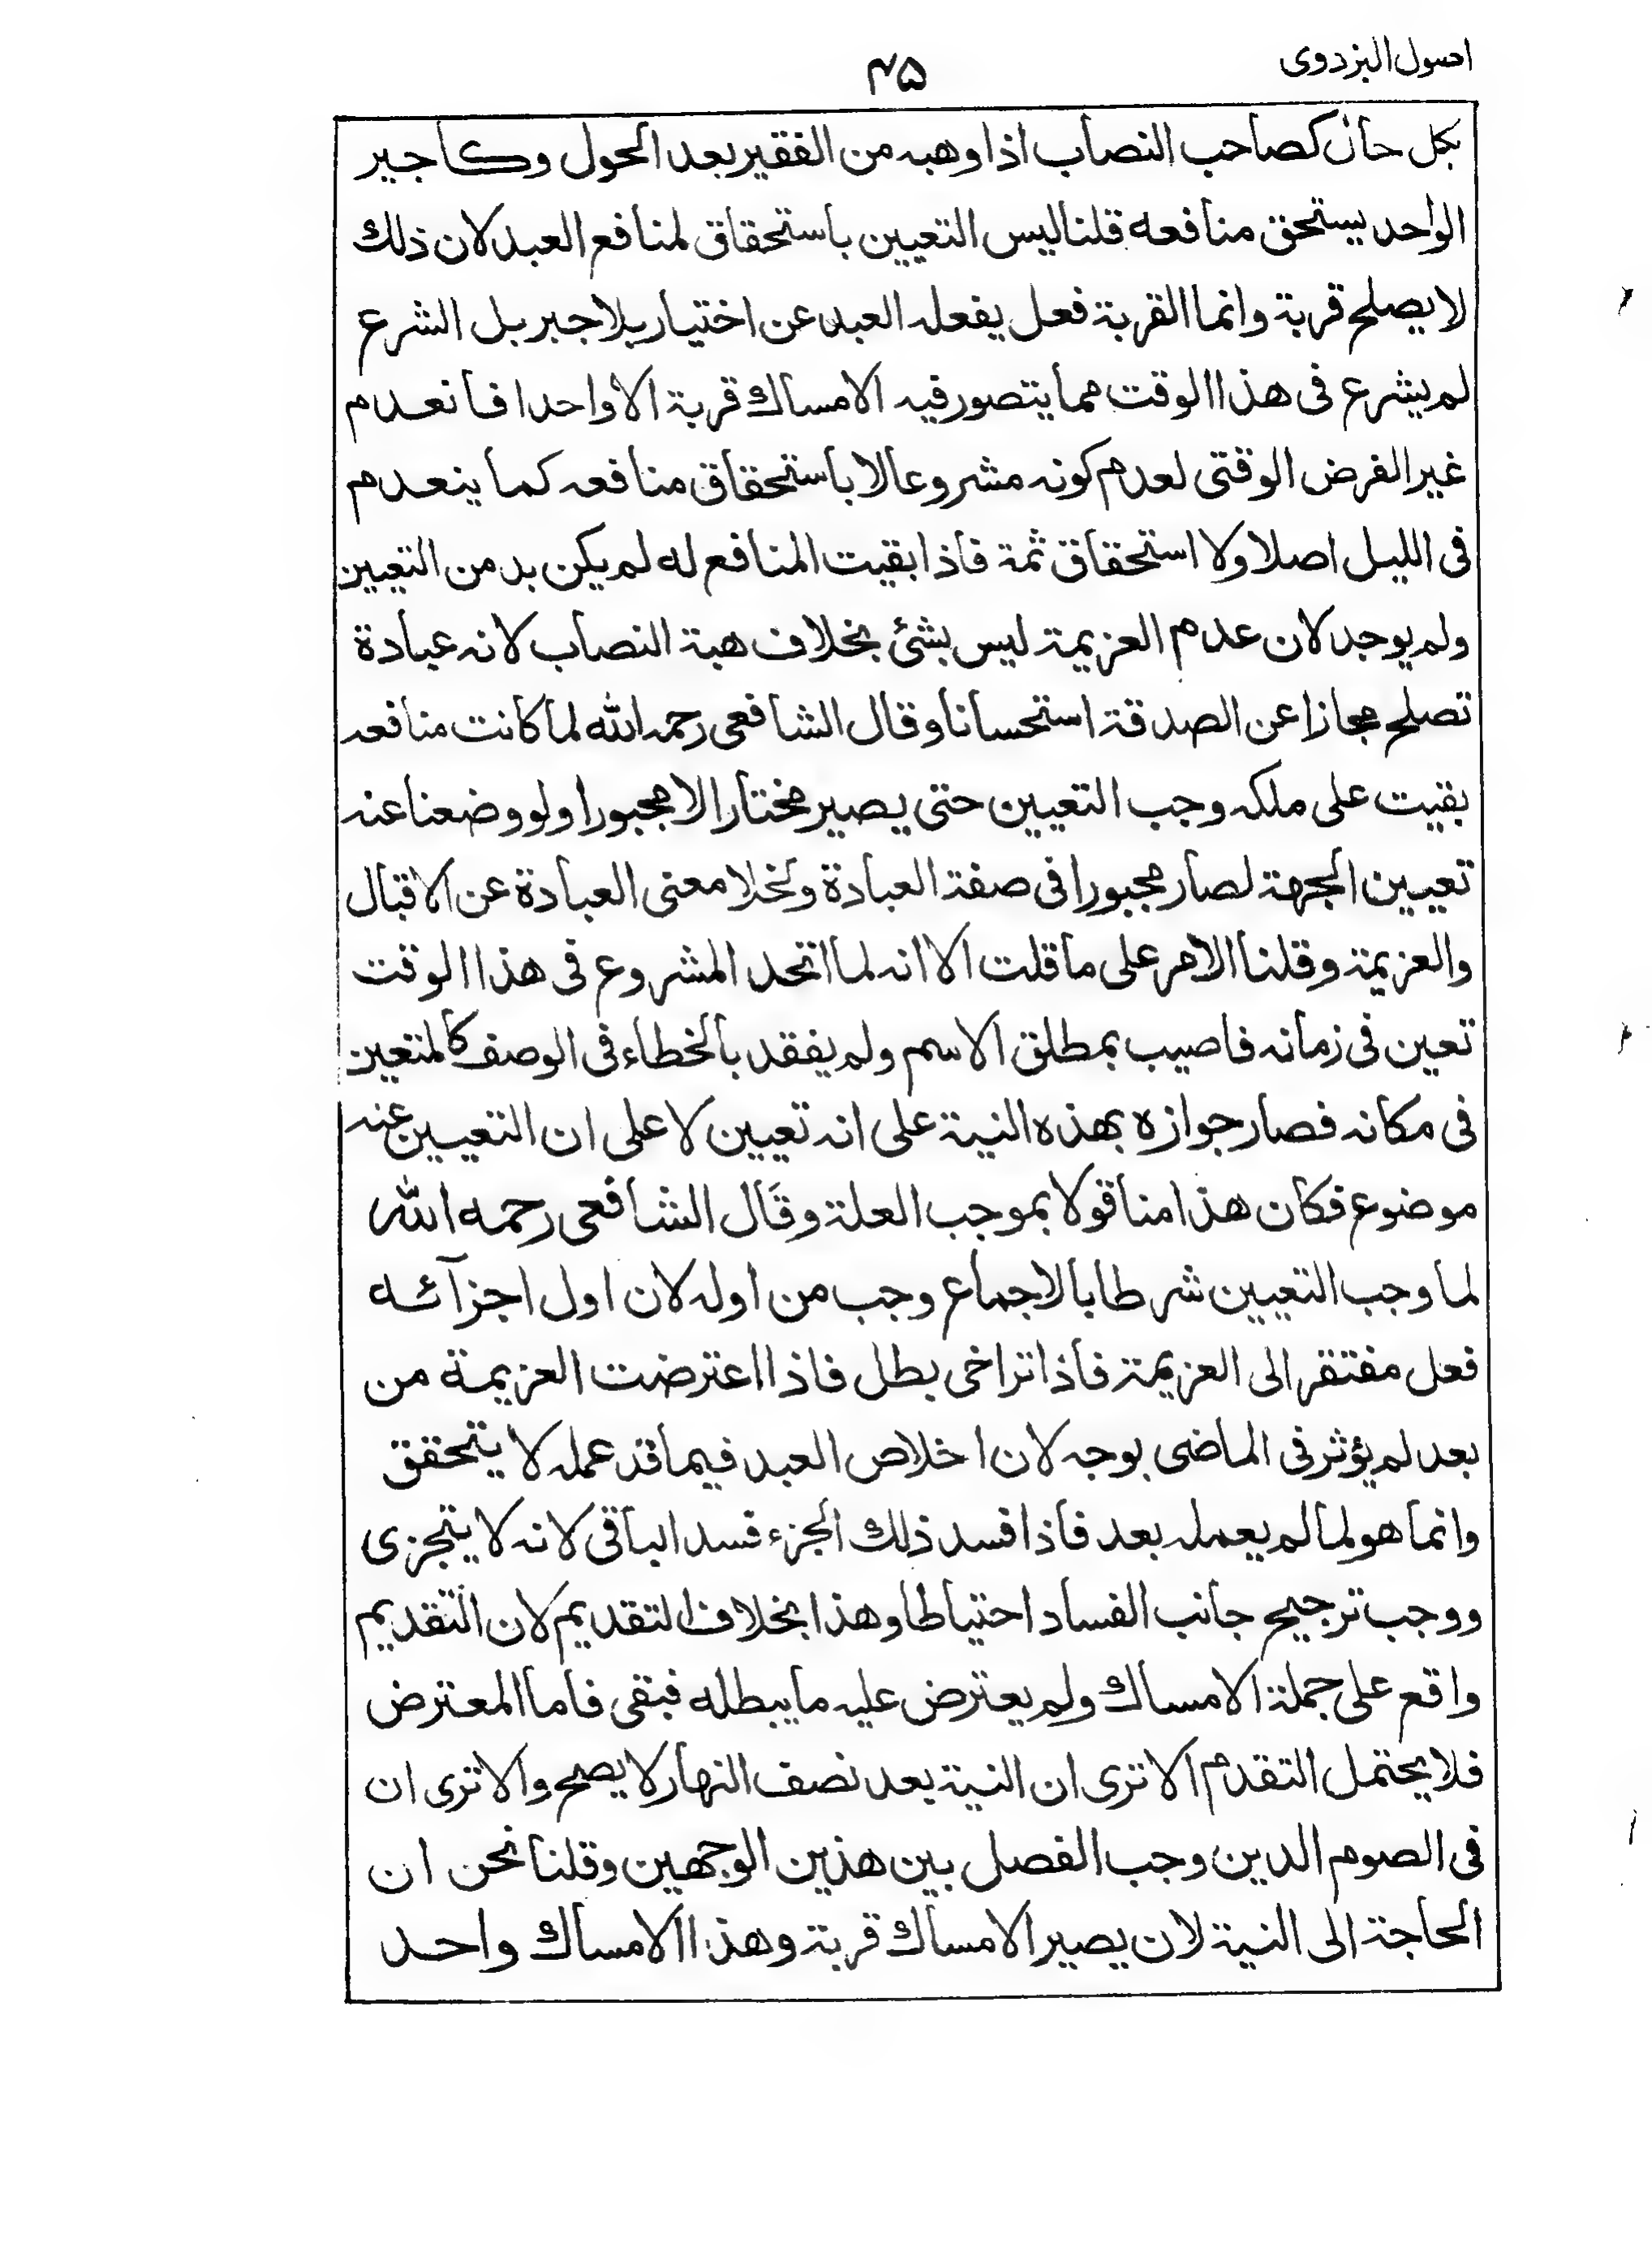 اصول البزدوی
۴۵
بكل حال كصاحب النصاب اذا وهبه من الفقير بعد الحول وكاجير
الواحد يستحق منافعه قلنا ليس التعيين باستحقاق لمنافع العبد لان ذلك
لا يصلح قربة وانما القربة فعل يفعله العبد عن اختيار بلا جبر بل الشرع
لم يشرع فى هذا الوقت مما يتصور فيه الامساك قربة الا واحدا فانعدم
غير الفرض الوقتى لعدم كونه مشروعا لا باستحقاق منافعه كما ينعدم
فى الليل اصلا ولا استحقاق ثمة فاذا بقيت المنافع له لم يكن بد من التعيين
ولم يوجد لان عدم العزيمة ليس بشئ بخلاف هبة النصاب لانه عبادة
تصلح مجازا عن الصدقة استحسانا وقال الشافعى رحمه الله لما كانت منافعه
بقيت على ملكه وجب التعيين حتى يصير مختارا لا مجبورا ولو وضعنا عنه
تعيين الجهة لصار مجبورا فى صفة العبادة ولخلا معنى العبادة عن الاقبال
والعزيمة وقلنا الامر على ما قلت الا انه لما اتحد المشروع فى هذا الوقت
تعين فى زمانه فاصيب بمطلق الاسم ولم يفقد بالخطاء فى الوصف كالمتعين
فى مكانه فصار جوازه بهذه النية على انه تعيين لا على ان التعيين عنه
موضوع فكان هذا منا قولا بموجب العلة وقال الشافعى رحمه الله
لما وجب التعيين شرطا بالاجماع وجب من اوله لان اول اجزآئه
فعل مفتقر الى العزيمة فاذا تراخى بطل فاذا اعترضت العزيمة من
بعد لم يؤثر فى الماضى بوجه لان اخلاص العبد فيما قد عمله لا يتحقق
وانما هو لما لم يعمله بعد فاذا فسد ذلك الجزء فسد الباقى لانه لا يتجزى
ووجب ترجيح جانب الفساد احتياطا وهذا بخلاف التقديم لان التقديم
واقع على جملة الامساك ولم يعترض عليه ما يبطله فبقى فاما المعترض
فلا يحتمل التقدم الا ترى ان النية بعد نصف النهار لا يصح والا ترى ان
فى الصوم الدين وجب الفصل بين هذين الوجهين وقلنا نحن ان
الحاجة الى النية لان يصير الامساك قربة وهذا الامساك واحد